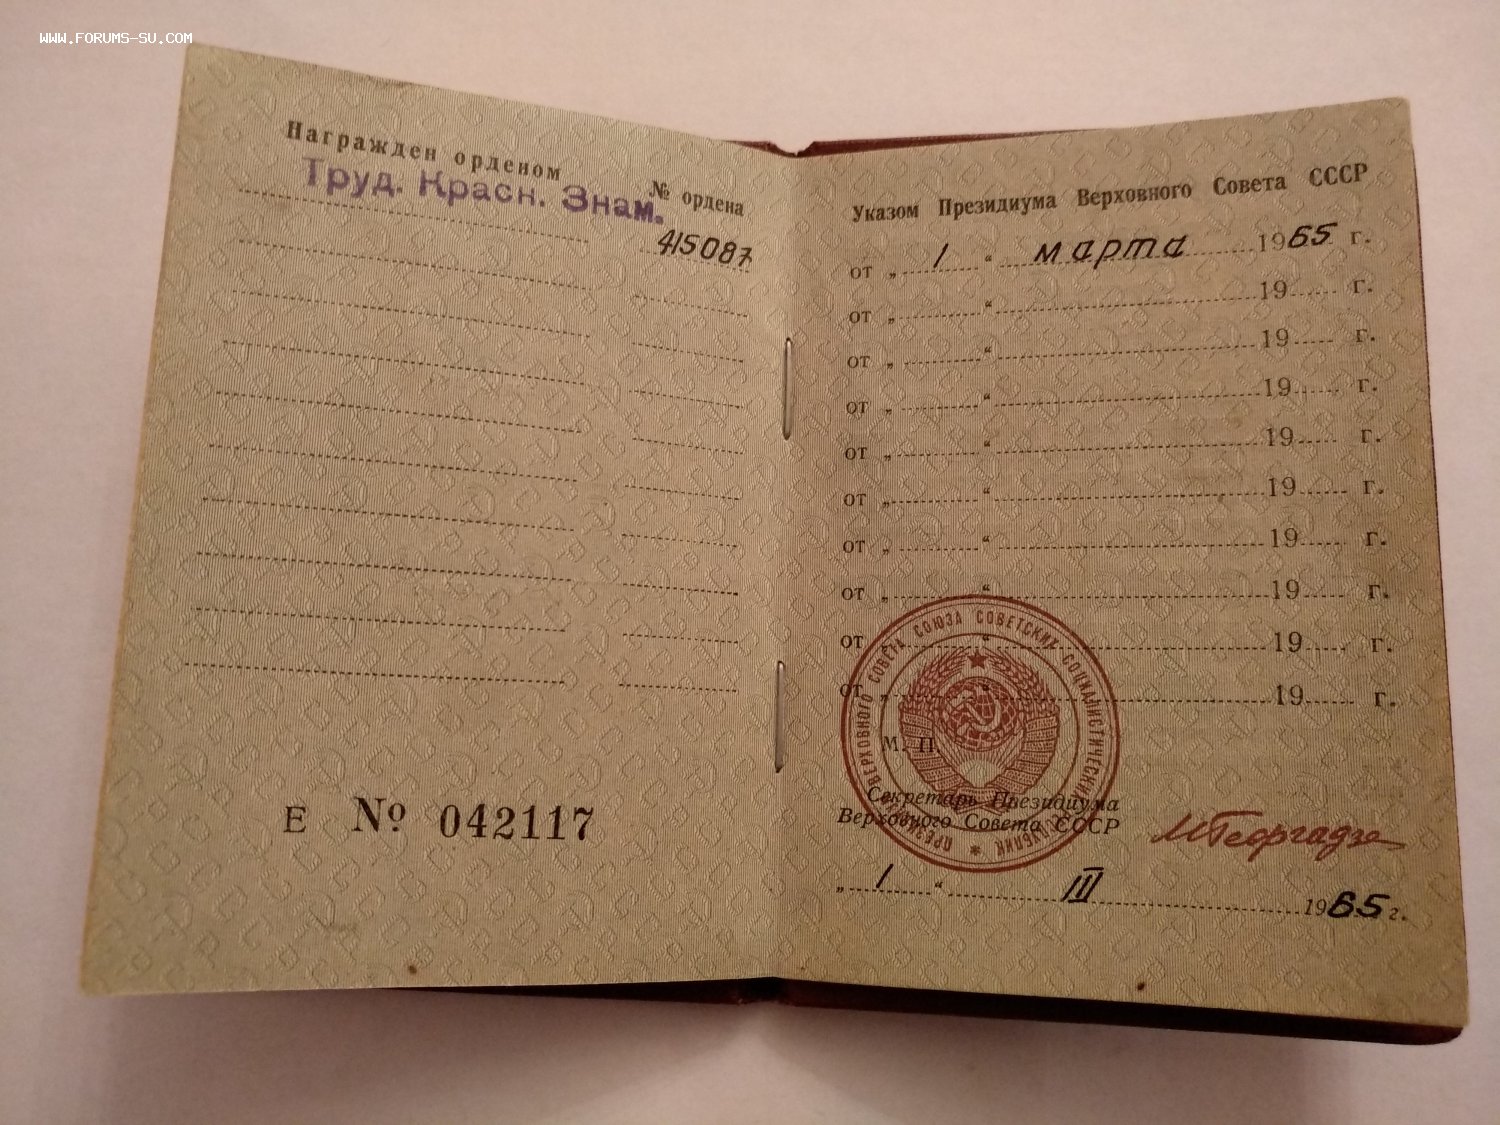 WWW.FORUMS-SU.COM
Награжден орденом
№ ордена
Труд. Красн. Знам.
415087
Е № 042117
Указом Президиума Верховного Совета СССР
от „ 1 “ марта 1965 г.
от „ “ 19 г.
от „ “ 19 г.
от „ “ 19 г.
от „ “ 19 г.
от „ “ 19 г.
от „ “ 19 г.
от „ “ 19 г.
от „ “ 19 г.
от „ “ 19 г.
ПРЕЗИДИУМ ВЕРХОВНОГО СОВЕТА СОЮЗА СОВЕТСКИХ СОЦИАЛИСТИЧЕСКИХ РЕСПУБЛИК
М. П.
Секретарь Президиума
Верховного Совета СССР
МГеоргадзе
„ 1 “ III 1965 г.